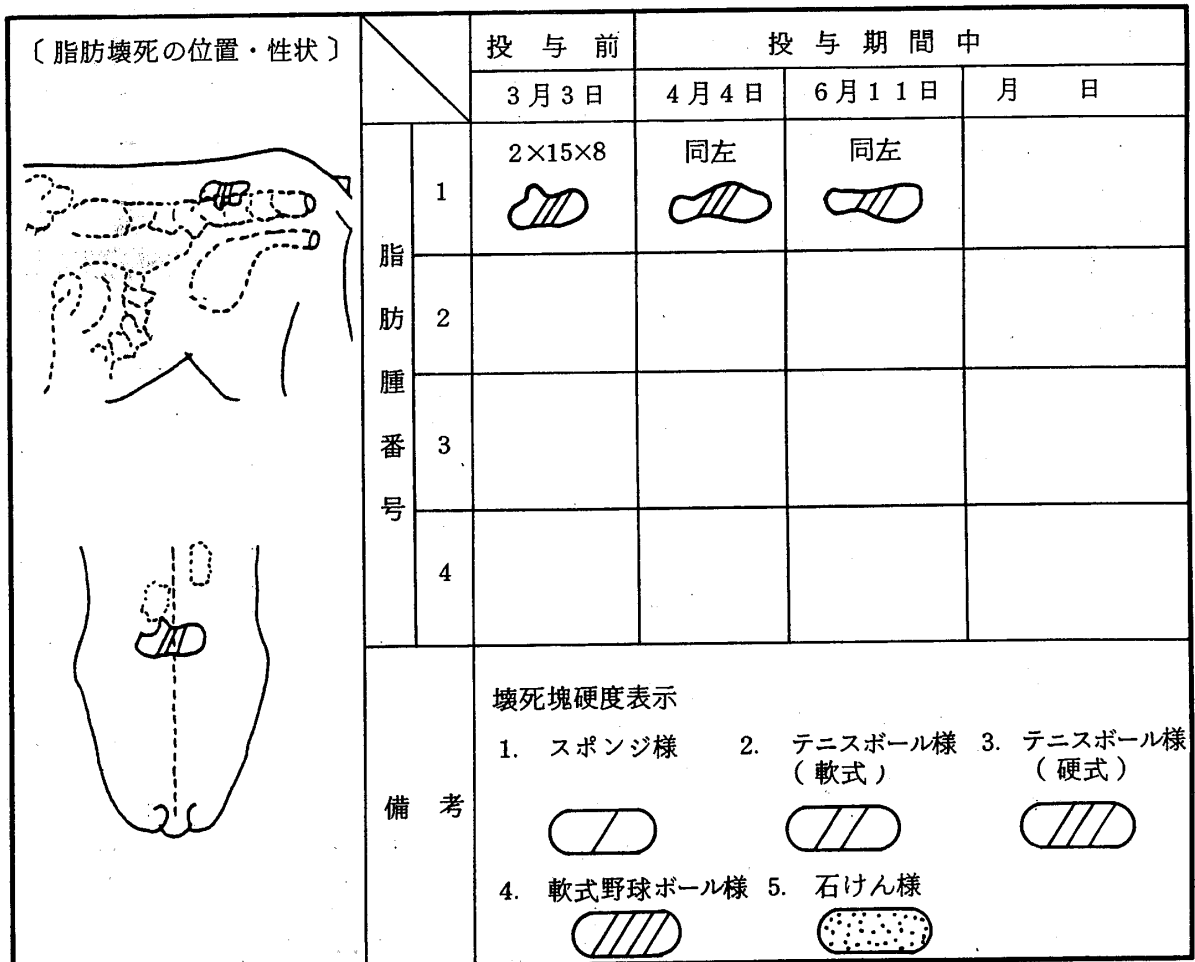 〔脂肪壊死の位置・性状〕
投与前 投与期間中
3月3日 4月4日 6月11日 月 日
脂肪腫番号
1 2×15×8 同左 同左
2
3
4
備考
壊死塊硬度表示
1. スポンジ様 2. テニスボール様(軟式) 3. テニスボール様(硬式)
4. 軟式野球ボール様 5. 石けん様